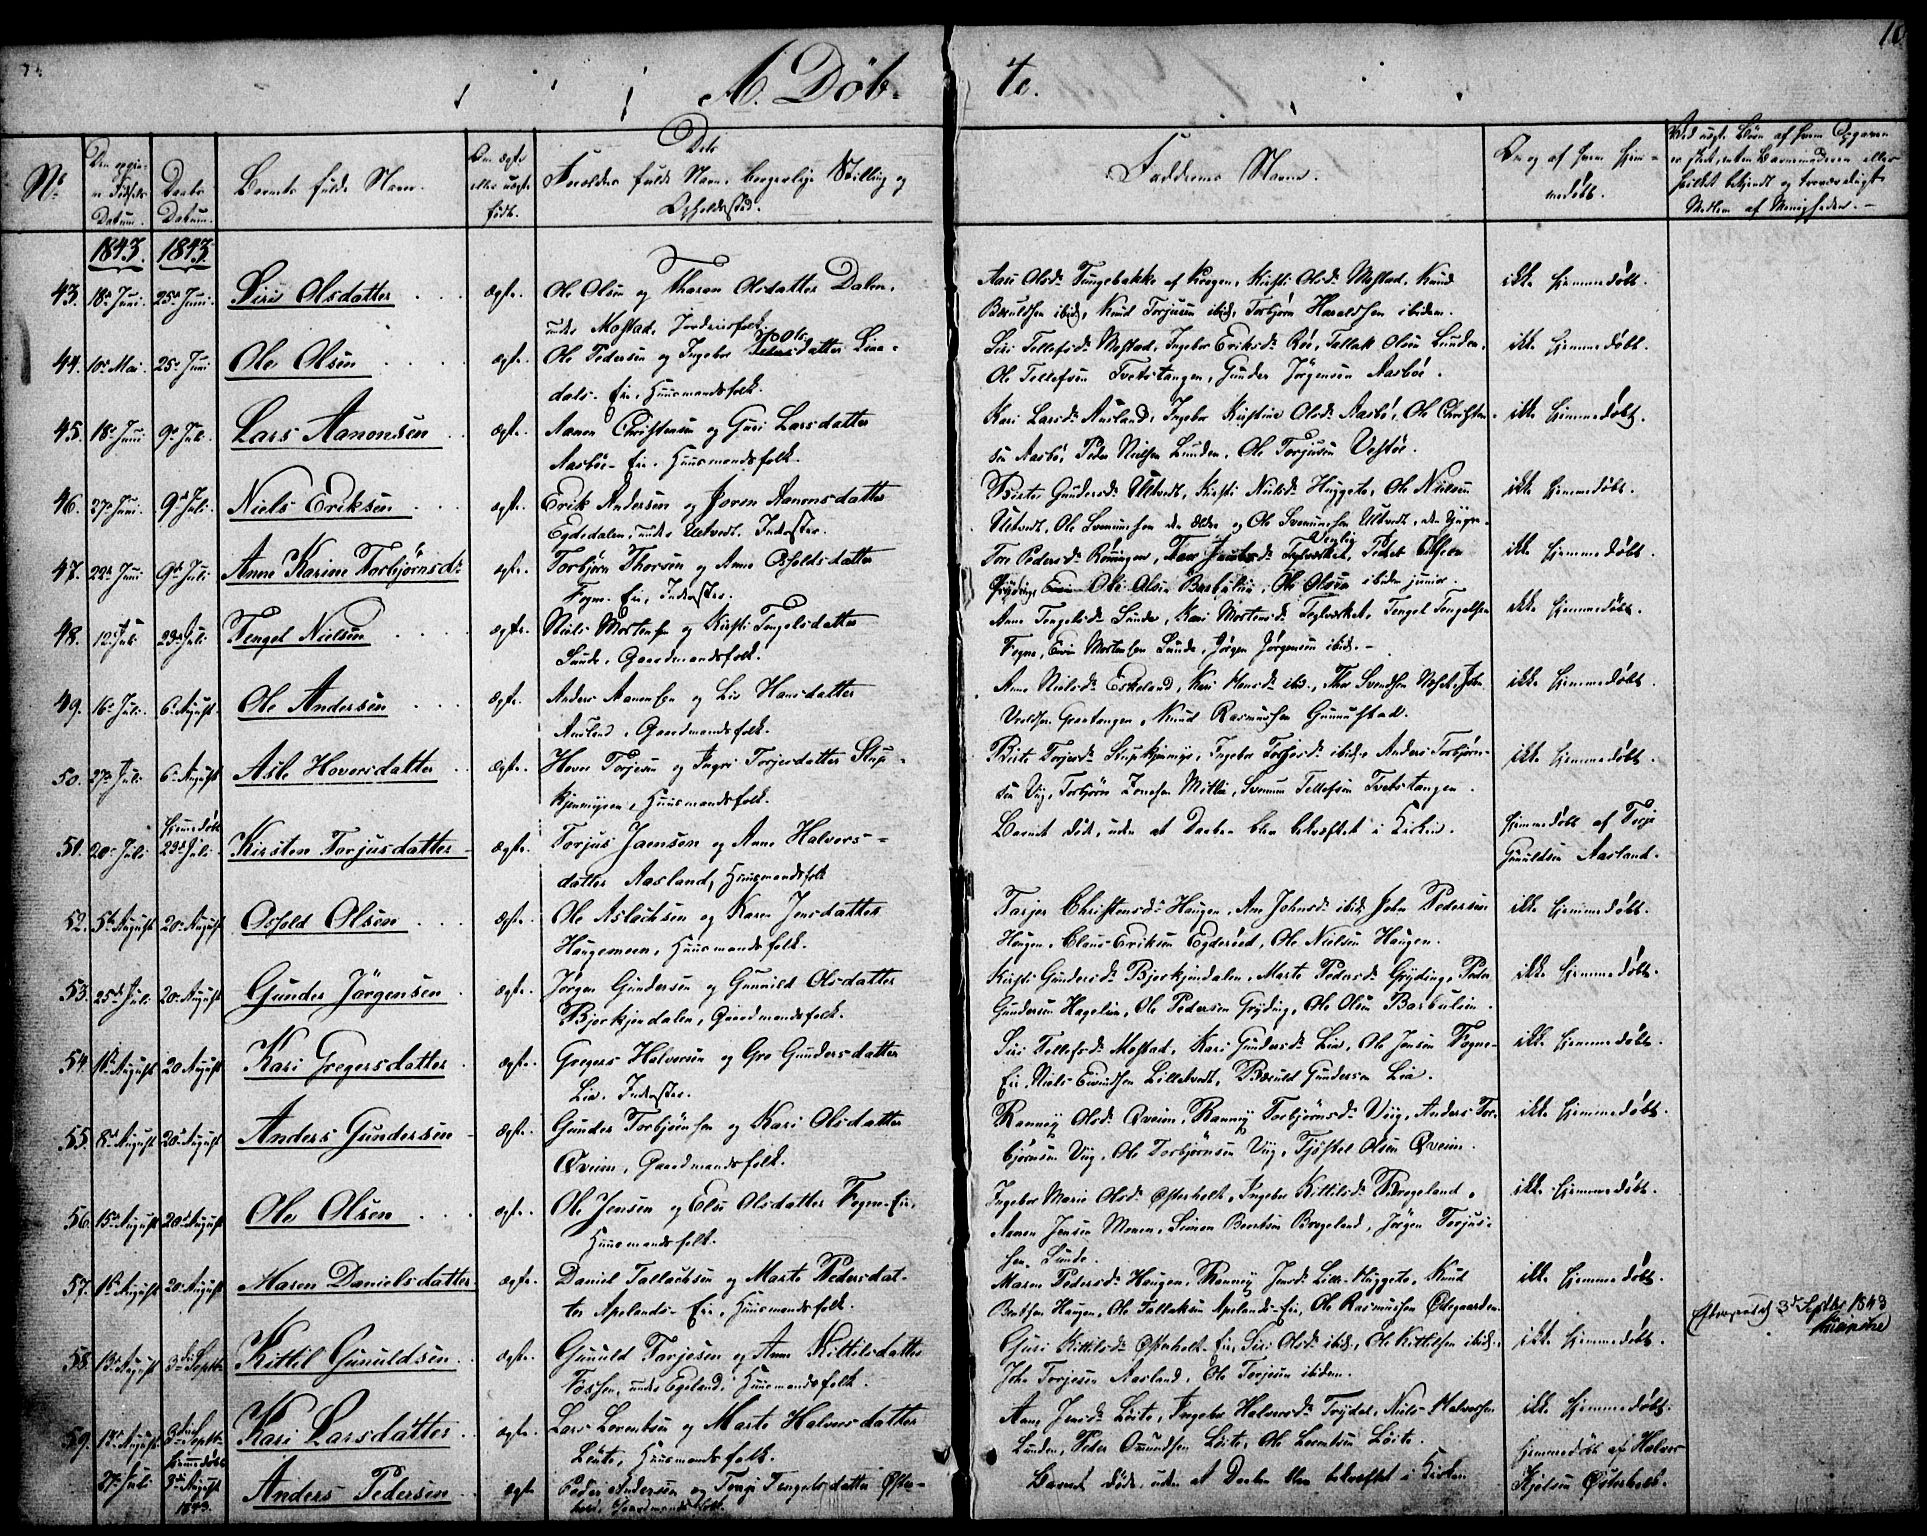 A. Døb-
te.
10
No
Datum.
Daabs Datum.
Barnets fulde Navn.
Forældres fulde Navn, borgerlige Stilling og
Opholdssted.
Faddernes Navne.
1843. 1843.
43. 18de Juni. 25de Juni. Siri Olsdatter ægte. Ole Olsen og Maren Olsdatter Dalen,
under Mostad, Inderstfolk.
ikke hjemmedøbt.
44. 10de Mai. 25de Juni Ole Olsen ægte. Ole Pedersen og Ingebor
dals-Eie, Huusmandsfolk.
Siri Tellefsdr Mostad, Ingebor Eriksdr Røe, Tellak Olsen Lunden,
Ole Tellefsen Tvetstangen, Gunder Jørgensen Aasboe.
ikke hjemmedøbt.
45. 18de Juni 9de Juli. Lars Aanonsen ægte. Aanon Christensen og Guri Larsdatter
Aasboe-Eie, Huusmandsfolk.
Kari Larsdr Ausland, Ingebor Kirstine Olsdr Aasbø, Ole Christen-
sen Aasbø, Peder Nielsen Lunden, Ole Torjusen Vestøe.
ikke hjemmedøbt.
46. 27de Juni. 9de Juli. Niels Eriksen ægte. Erik Andersen og Joren Aanonsdatter
Egdedalen, under Ulltvedt, Inderster.
Berte Gundersdr Ulltvedt, Kirsti Nielsdr Huggete, Ole Nielsen
Ulltvedt, Ole Svennungsen den ældre og Ole Svennungsen Ulltvedt, den yngre.
ikke hjemmedøbt.
47. 22de Juni 9de Juli. Anne Karine Torbjørnsdr ægte. Torbjørn Thorsen og Anne Osfoldsdatter
Fogne-Eie, Inderster.
Ole Olsen Barbulia, Ole Olsen ibidem junior.
ikke hjemmedøbt.
48. 12te Juli 23de Juli Tengel Nielsen ægte. Niels Mortensen og Kirsti Tengelsdatter
Lunde, Gaardmandsfolk.
Anne Tengelsdr Lunde, Kari Mortensdr Teglværket, Tengel Tengelsen
Fogne, Even Mortensen Lunde, Jørgen Jørgensen ibid.
ikke hjemmedøbt.
49. 16de Juli. 6te August. Ole Andersen ægte. Anders Aanonsen og Liv Hansdatter
Ausland, Gaardmandsfolk.
Anne Nielsdr Eskeland, Kari Hansdr ibid.,
Grantangen, Knud Rasmussen Gunnulstad.
ikke hjemmedøbt.
50. 27de Juli 6te August Asle Hoversdatter ægte. Hover Torjesen og Ingri Torjesdatter Stup-
kjenmyren, Huusmandsfolk.
Berte Torjesdr Stupkjenmyr, Ingebor Torjesdr ibid., Anders Torbjørn-
sen Vig, Torbjørn Jonsen Mitlie, Svennum Tellefsen Tvetstangen.
ikke hjemmedøbt.
51. 20de Juli hjemmedøbt 23de Juli Kirsten Torjusdatter ægte. Torjus Jaensen og Anne Halvors-
datter Aasland, Huusmandsfolk
Barnet døde, uden at Daaben blev bekræftet i Kirken.
hjemmedøbt af Torje
Gunuldsen Aasland.
52. 5te August 20de August Osfold Olsen ægte. Ole Aslachsen og Karen Jensdatter
Haugemoen, Huusmandsfolk.
Tarjer Christensdr Haugen, Ane Johnsdr ibid., John Pedersen
Haugen, Claus Eriksen Egderøed, Ole Nielsen Haugen.
ikke hjemmedøbt.
53. 25de Juli. 20de August Gunder Jörgensen ægte. Jørgen Gundersen og Gunnild Olsdatter
Bjorkjendalen, Gaardmandsfolk.
Kirsti Gundersdr Bjorkjendalen, Marte Pedersdr Gryding, Peder
Gundersen Hagelien, Ole Pedersen Gryding, Ole Olsen Barbulien.
ikke hjemmedøbt.
54. August 20de August Kari Gregersdatter ægte. Gregers Halvorsen og Gro Gundersdatter
Lia, Inderster.
Siri Tellefsdr Mostad, Kari Gundersdr Lia, Ole Jensen Fogne-
Eie, Niels Evindsen Lilletvedt, Gundersen Lia.
ikke hjemmedøbt.
55. 8de August 20de August Anders Gundersen ægte. Gunder Torbjørnsen og Kari Olsdatter
Qveim, Gaardmandsfolk.
Ranney Olsdr Qveim, Ranney Torbjørnsdr Viig, Anders Tor-
bjørnsen Viig, Ole Torbjørnsen Viig, Tjøstel Olsen Qveim.
ikke hjemmedøbt.
56. 15de August 20de August Ole Olsen ægte. Ole Jensen og Else Olsdatter Fogne-Eie,
Huusmandsfolk.
Ingebor Marie Olsdr Østerholt, Ingebor Kittilsdr Brogeland,
Aanon Jensen Monen, Simon Berntsen Brogeland, Jørgen Torjus-
sen Lunde.
ikke hjemmedøbt.
57. August 20de August Maren Danielsdatter ægte. Daniel Tallachsen og Marte Pedersdat-
ter Apelands-Eie, Huusmandsfolk.
Maren Pedersdr Haugen, Ranney Jensdr Lille-Huggete, Knud
Berntsen Haugen, Ole Tallaksen Apelands-Eie, Ole Rasmussen Ødegaarden.
ikke hjemmedøbt.
3de Septbr 1843
58. 13de August 3die Septbr Kittil Gunuldsen ægte. Gunuld Tarjesen og Anne Kittilsdatter
Fossen, under Egeland, Huusmandsfolk.
Guri Kittilsdr Østerholt-Eie, Siri Olsdr ibid., Ole Kittilsen ibid.,
John Torjesen Aasland, Ole Torjesen ibidem.
ikke hjemmedøbt.
59. 13de August 3die Septbr Kari Larsdatter ægte. Lars Lorentsen og Marte Halvorsdatter
Løite, Huusmandsfolk.
Anne Jensdr Løite, Ingebor Halvorsdr Trydal, Niels Halvorsen
Lunden, Peder Omundsen Løite, Ole Lorentsen Løite.
ikke hjemmedøbt.
27de Juli hjemmedøbt 3die August 1843. Anders Pedersen ægte Peder Andersen og Tengelsdatter Øster-
holt, Gaardmandsfolk.
Barnet døde, uden at Daaben blev bekræftet i Kirken
hjemmedøbt af Halvor
Kjølsen Østerholt.